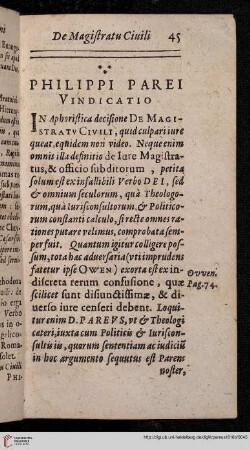 De Magiſtratu Civili 45
PHILIPPI PAREI
VINDICATIO
IN Aphoriſtica deciſione DE MAGI-
STRATV CIVILI, quid culpari jure
queat, equidem non video. Neque enim
omnis illa definitio de Jure Magiſtra-
tus, & officio ſubditorum, petita
ſolum eſt ex infallibili Verbo DEI, ſed
& omnium ſeculorum, quà Theologo-
rum, quà Juriſconſultorum & Politico-
rum conſtanti calculo, ſi recte omnes ra-
tiones putare velimus, comprobata ſem-
per fuit. Quantum igitur colligere poſ-
ſum, tota hac adverſaria (uti imprudens
fatetur ipſe OWEN) exorta eſt ex in-
diſcreta rerum confuſione, quæ
ſcilicet ſunt disjunctiſſimæ, & di-
verſo jure cenſeri debent. Loqui-
tur enim D. PAREVS, ut & Theologi
cæteri, juxta cum Politicis & Juriſcon-
ſultis iis, quorum ſententiam ac judiciū
in hoc argumento ſequutus eſt Parens
noſter,
Ovven.
Pag. 74.
PHI-